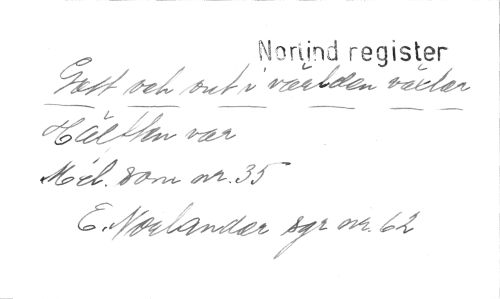 Norlind register
Gott och ont i världen växlar
Hälften var
Mel. som nr. 35
E. Norlander sgr nr. 62